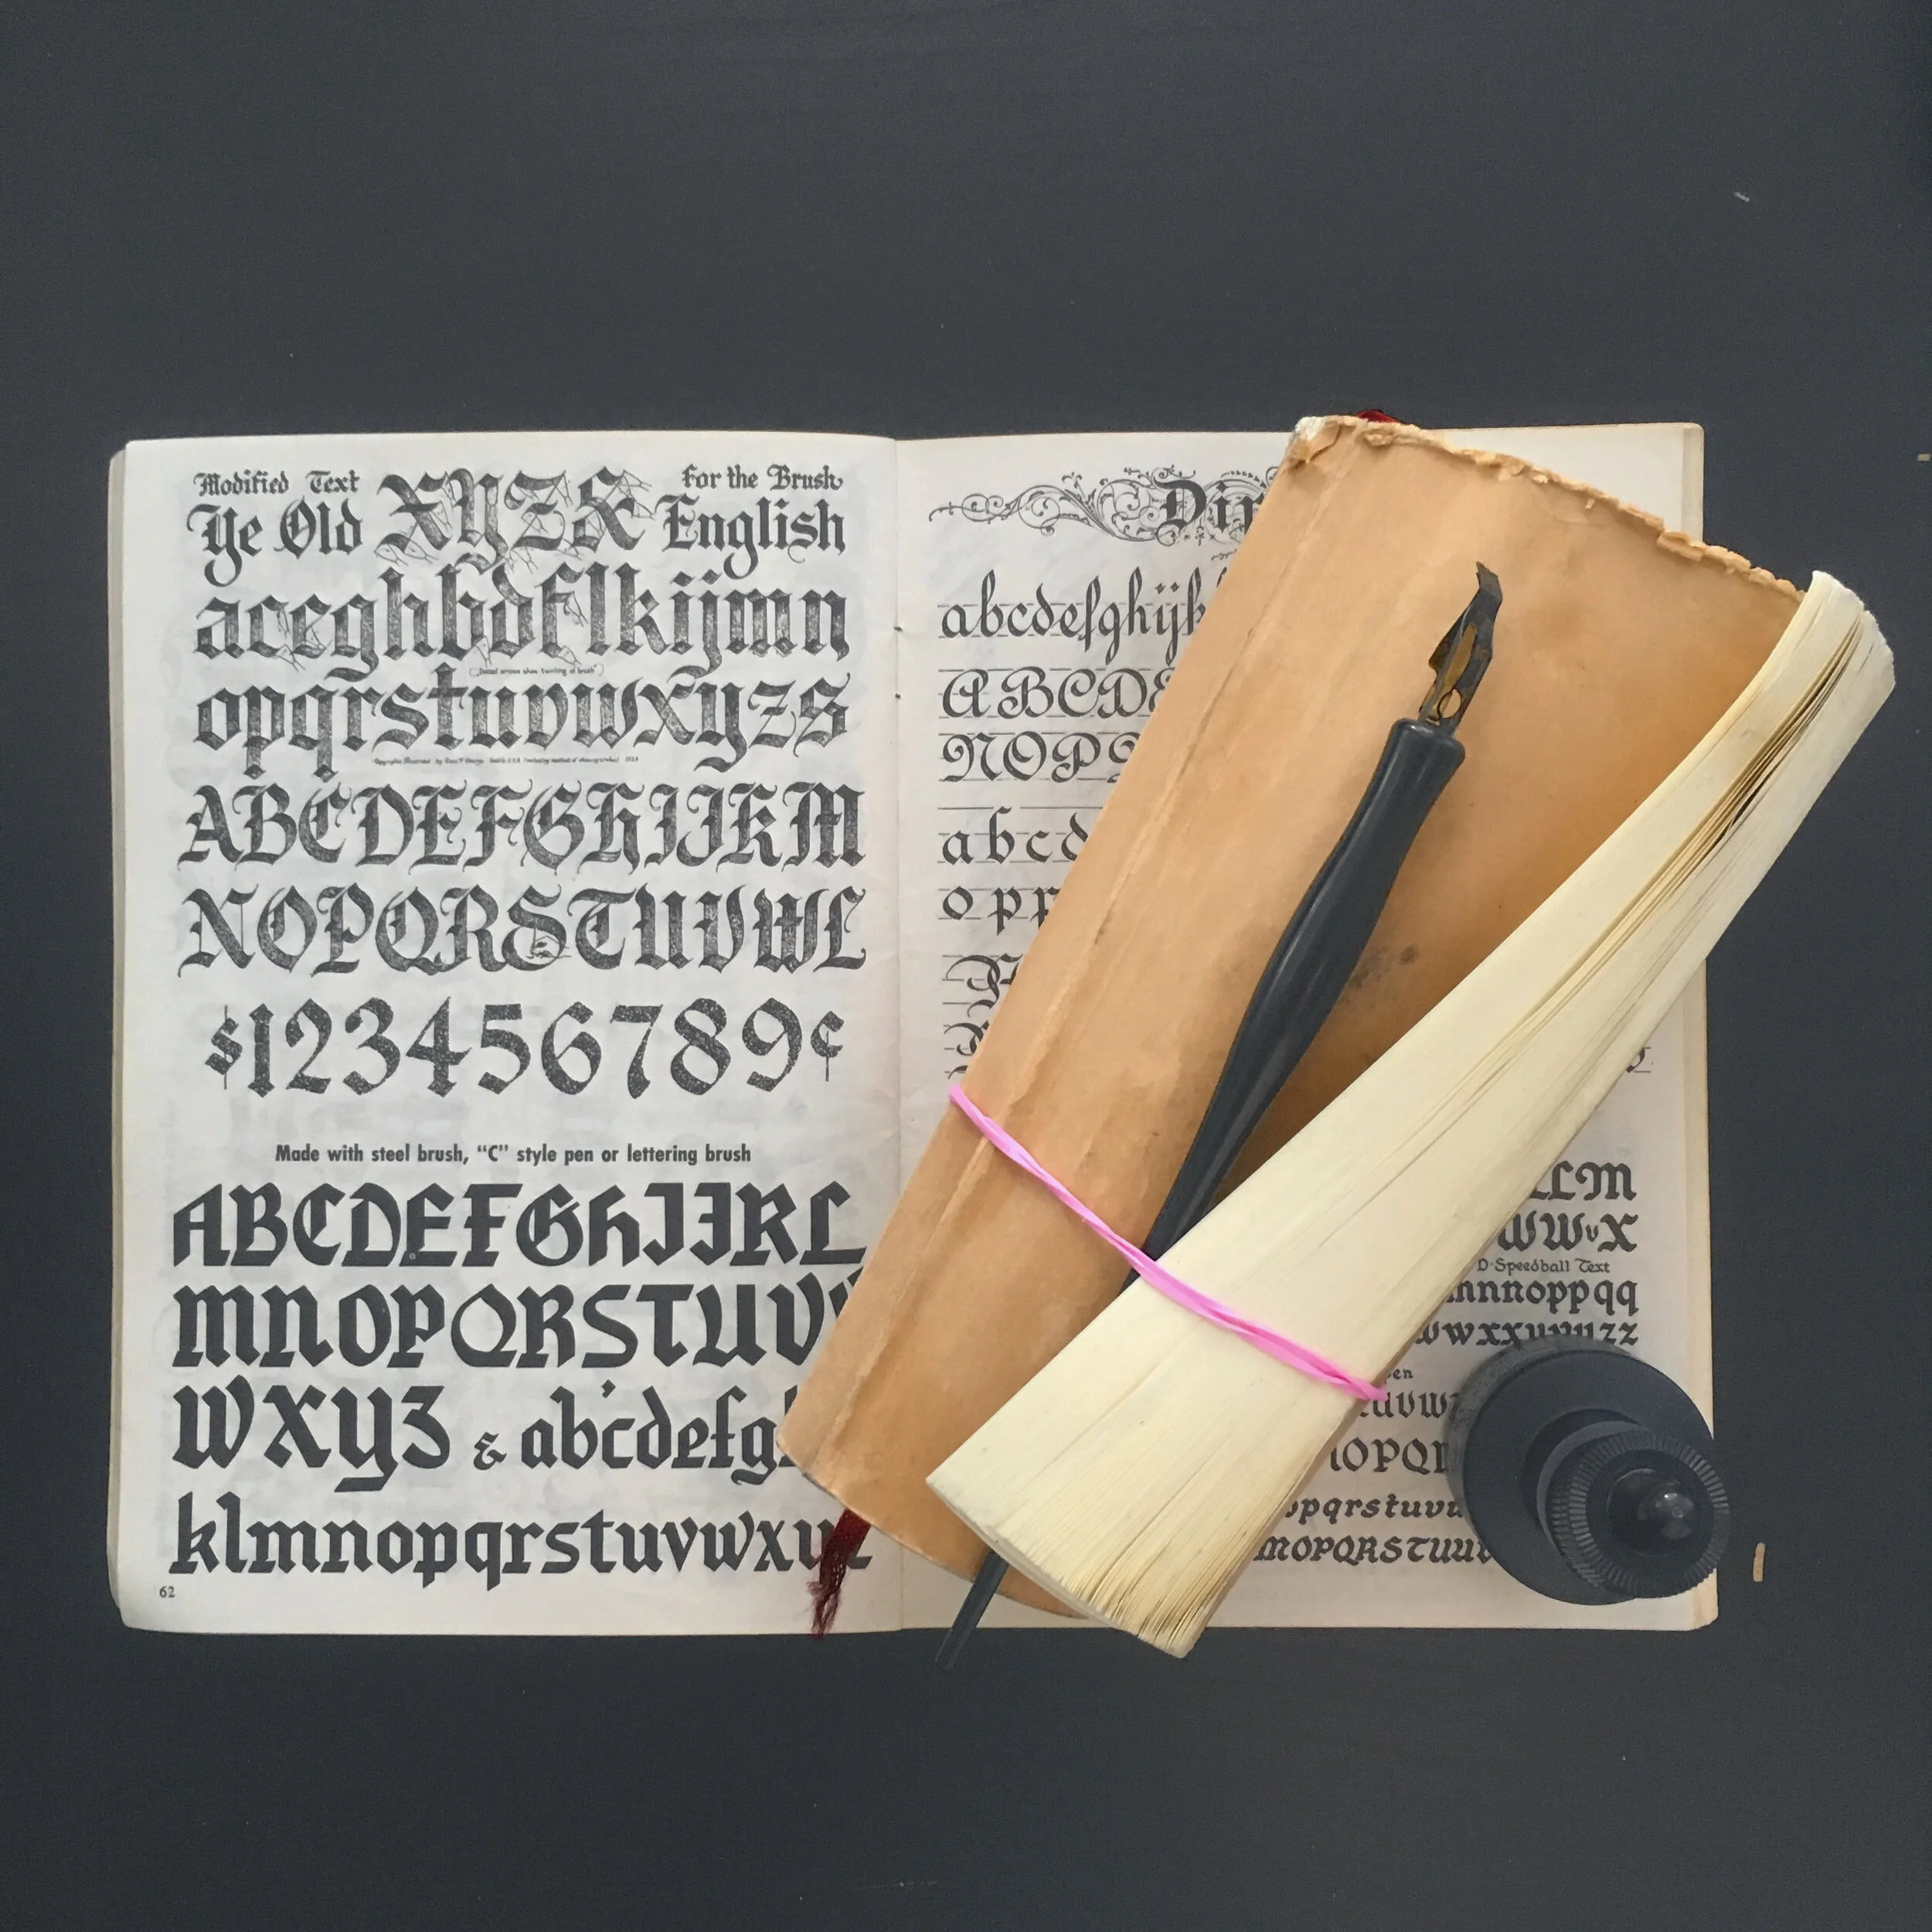 Modified Text XYZ& For the Brush
Ye Old English
aceghbdflkijmn
("Dotted arrows show twirling of brush")
opqrstuvwxyzs
ABCDEFGHIJKM
NOPQRSTUVWL
$123456789¢
Made with steel brush, “C” style pen or lettering brush
ABCDEFGHIJKL
MNOPQRSTUV
WXYZ & abcdefg
klmnopqrstuvwxyz
62
Dip
abcdefghijk
ABCDE
NOP
abcd
opp
LM
WWVX
D-Speedball Text
nnnoppqq
wwxxyyyyzz
uvw
NOPQ
opqrstuvu
MNOPQRSTUU